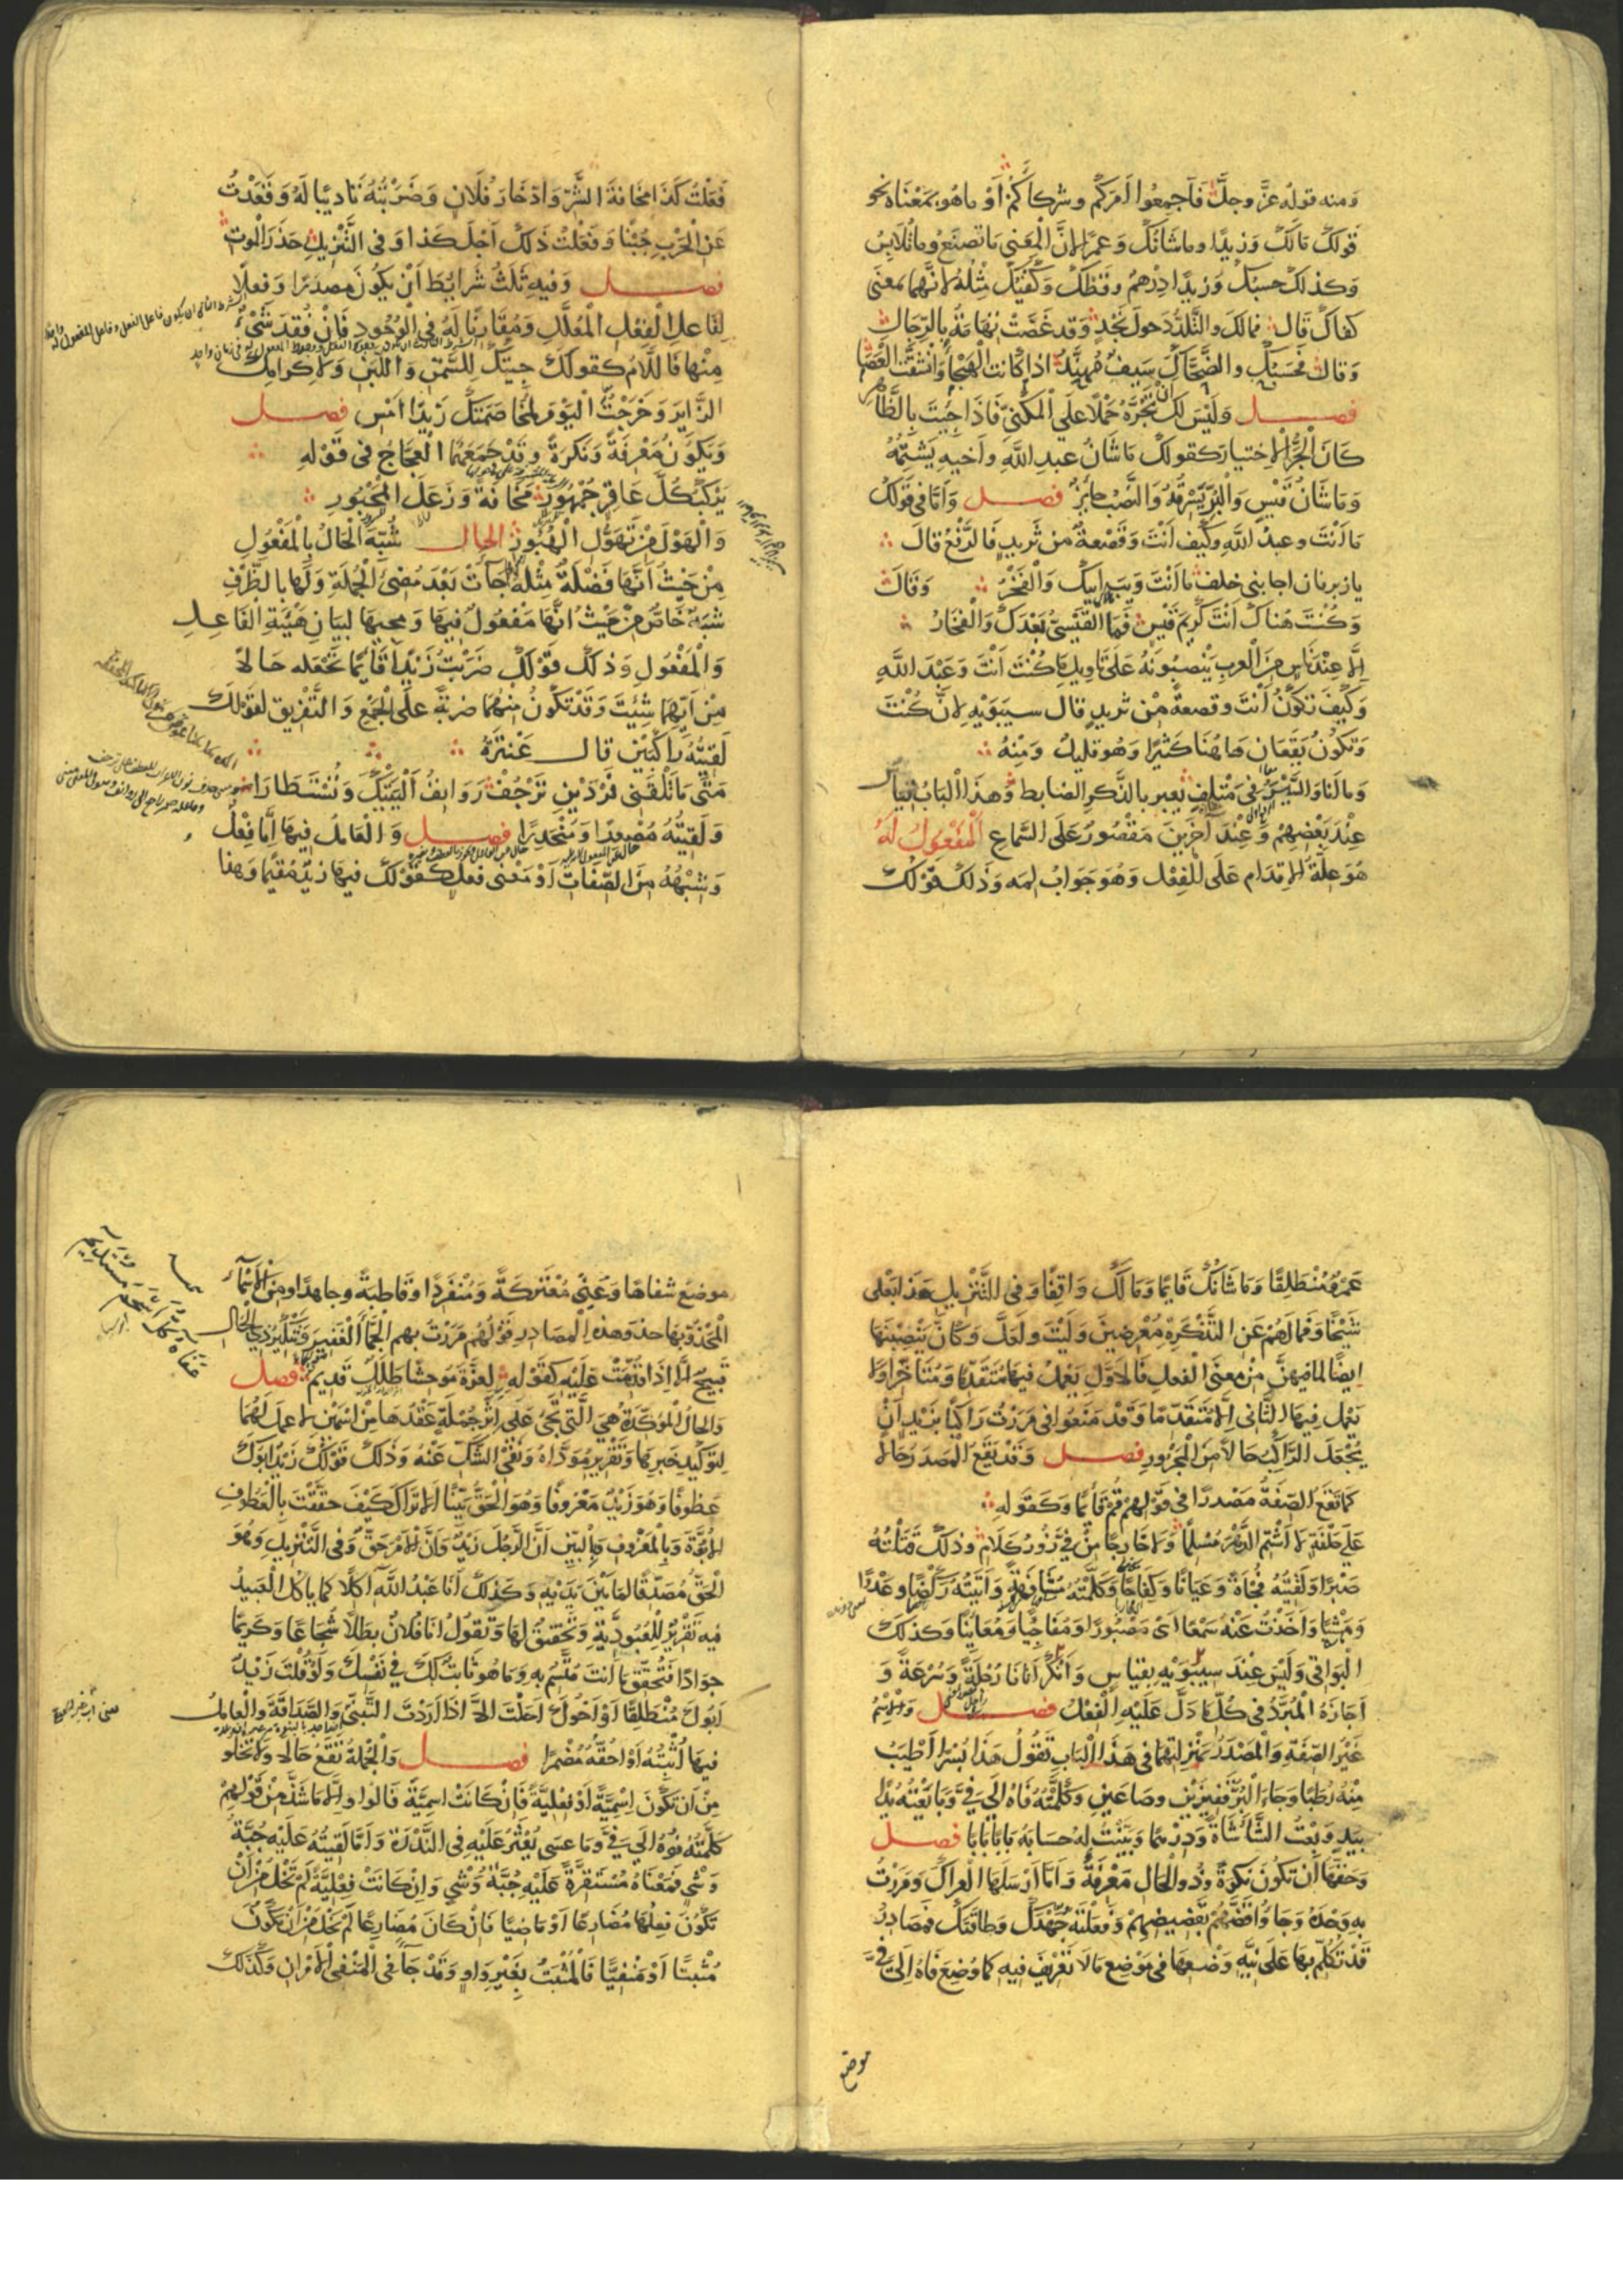 ومنه قوله عزّ وجلّ فَاَجمِعُوا اَمرَكُم وشركاكُم اَوْ ماهو بمَعْنَاه نحو
قولكَ مَالكَ وَزيدًا وماشَانُكَ وَعمرًا لانَّ المَعنى مَا تصنَعُ وما تُلابِسُ
وَكذلكَ حسبُكَ وَزيدًا دِرْهمٌ وقَطْكَ وَكَفْيُكَ مِثْلُهُ لانَّهما بمعنَى
كفاكَ قَال فمالَكَ والتَّلَدُّدَ حولَ نجدٍ وَقد غصَّتْ تِهَامَةُ بالرِّجَالِ
وَقالَ فحَسْبُكَ والضَّحَّاكَ سَيفٌ مُهنَّدٌ اذا كانت الهَيجَا وَانشقَّت العَصَا
فصل وَلَيْسَ لكَ اَنْ تجُرَّهُ حَمْلًا علَى المَكنِيّ فَاذَا جِئتَ بِالظَّاهِر
كَانَ الجَرُّ الاختيارَ كقولكَ مَا شَانُ عبدِ اللّٰهِ واَخيهِ يَشتِمُهُ
وَمَا شَانُ قَيْسٍ وَالبُرِّ يَسْرِقُهُ وَالنَّصْبُ جائزٌ فصل وَاَمّا فى قَولكَ
مَا اَنْتَ وعبدُ اللّٰهِ وكَيْفَ اَنْتَ وَقَصْعةٌ من ثَريدٍ فَالرَّفْعُ قالَ
يا زبرقان اخا بنى خلف مَا اَنْتَ وَيبَ اَبيكَ وَالفَخْرُ وَقَالَ
وَكُنْتَ هُنَاكَ اَنْتَ كَرِيمَ قَيْسٍ فَمَا القَيْسيُّ بَعْدَكَ وَالفخَارُ
اِلَّا عِنْدَ نَاسٍ مِنَ العرب يَنْصِبُونَهُ عَلَى تَاوِيلِ مَا كُنْتَ اَنْتَ وَعَبْدَ اللّٰهِ
وَكَيْفَ تَكُونُ اَنْتَ وقصعةً مِنْ ثَريدٍ قال سيبَوَيْهِ لانَّ كُنْتَ
وَتكُونُ يَقَعَانِ هَا هُنَا كَثيرًا وَهُوَ قليلٌ وَمِنْهُ
وَمالَنَا والسَّيْرَ فى مَتلفٍ يعبر بالذَّكَرِ الضابط وَهذا البَابُ قِيَاسٌ
عِنْدَ بَعْضِهِمْ وَعِنْدَ آخَرِينَ مَقْصُورٌ عَلَى السَّماعِ اَلْمَفْعُولُ لَهُ
هُوَ عِلَّةُ الاِقدَامِ عَلَى الفِعْلِ وَهُوَ جَوَابُ لِمَهْ وَذَلكَ قَوْلكَ
فَعَلْتُ كَذَا مَخَافةَ الشَّرِّ وَادِّخَارَ فُلَانٍ وَضَرَبْتُهُ تَادِيبًا لَهُ وَقَعَدْتُ
عَنِ الحَرْبِ جُبْنًا وَفَعَلْتُ ذَلكَ اَجْلَ كَذَا وَفى التَّنزِيلِ حَذَرَ المَوتِ
فصل وَفيهِ ثَلَثُ شَرَايِطَ اَنْ يَكُونَ مصدرًا وَفعلًا
لِفَاعلِ الفِعْلِ المُعَلَّلِ وَمُقَارِنًا لَهُ فى الوُجُودِ فَاِنْ فُقِدَ شَيْءٌ
مِنْها فَاللَّامُ كقولكَ جِئتُكَ للسَّمْنِ وَاللَّبَنِ وَلاِكرامِكَ
الزَّايِرَ وَخَرَجْتُ اليَوْمَ لمخاصَمَتِكَ زَيْدًا اَمْسِ فصل
وَيكُونُ مَعْرِفَةً وَنَكرةً وَقَدْ جَمَعَهُمَا العَجَّاجُ فى قَوْلهِ
يَرْكَبُ كُلَّ عَاقِرٍ جُمْهُورِ مَخَافةً وَزَعَلَ المَحْبُورِ
وَالهَوْلَ مِنْ تَهَوُّلِ الهُبُورِ الحال شُبِّهَ الحَالُ بِالمَفْعُولِ
مِنْ حَيْثُ اَنَّهَا فَضْلَةٌ مِثْلُهُ جآءَتْ بَعْدَ مُضِىِّ الجُمْلَةِ وَلَها بِالظَّرْفِ
شبَهٌ خَاصٌّ مِنْ حَيْثُ اَنَّهَا مَفْعُولٌ فيهَا وَمجيها لِبَيَانِ هَيْئَةِ الفَاعِلِ
وَالمَفْعُولِ وَذلكَ قَوْلكَ ضَرَبْتُ زَيْدًا قَائِمًا تَجْعَلُه حَالًا
مِنْ اَيِّهمَا شِئتَ وَقَدْ تَكُونُ مِنْهُمَا ضربةً عَلَى الجَمْعِ وَالتَّفْرِيقِ كقَوْلكَ
لَقيتُهُ رَاكبَيْنِ قَالَ عَنترَةُ
مَتَى مَا تَلْقَنى فَرْدَيْنِ تَرْجُفْ رَوَانِفُ اَليَتَيْكَ وَتُسْتَطَارَا
وَلَقِيتُهُ مُصْعِدًا وَمُنْحَدِرًا فصل وَالعَامِلُ فِيهَا اِمَّا فِعْلٌ
وَشِبْهُهُ مِنَ الصِّفَاتِ اَوْ مَعْنَى فعلٍ كقوْلكَ فيهَا زيْدٌ مُقيمًا وَهذا
عَمْرٌو مُنْطَلِقًا وَمَا شَانُكَ قَايمًا وَمَالَكَ وَاقفًا وَفى التَّنْزيلِ هَذَا بَعْلى
شَيْخًا وَفَمَا لَهُمْ عَنِ التَّذْكِرَةِ مُعْرِضِينَ وَلَيْتَ وَلَعَلَّ وَكَانَّ يَنْصِبْنَهَا
ايضًا لما فِيهِنَّ مِنْ معنَى الفعلِ فَالاَوّلُ يَعْمَلُ فيهَا مُتَقَدِّمًا وَمُتَاَخِّرًا وَلَا
يَعْمَلُ فيهَا الثَّانى اِلَّا مُتَقَدِّمًا وَقَدْ مَنَعُوا فى مَرَرْتُ رَاكبًا بِزَيْدٍ اَنْ
يُجْعَلَ الرَّاكبُ حَالًا مِنَ المَجْرُورِ فصل وَقَدْ يَقَعُ المَصْدَرُ حَالًا
كمَا تَقَعُ الصِّفَةُ مَصْدرًا فى قَوْلِهِمْ قُمْ قَائِمًا وَكَقَوْلهِ
عَلَى حَلْفَةٍ لَا اَشْتِمُ الدَّهْرَ مُسْلِمًا وَلَا خَارِجًا مِنْ فِيَّ زُورُ كَلَامِ وَذلكَ قَتَلْتُهُ
صَبْرًا وَلَقيتُهُ فُجَاءَةً وَعِيَانًا وَكِفَاحًا وَكَلَّمْتُهُ مُشَافَهَةً وَاَتَيْتُهُ رَكْضًا وَعَدْوًا
وَمَشْيًا وَاَخَذْتُ عَنْهُ سَمْعًا اَىْ مَصْبُورًا وَمُفَاجِيًا وَمُعَايِنًا وَكذلكَ
البَوَاقى وَلَيْسَ عِنْدَ سيبَوَيْهِ بِقِيَاسٍ وَاَنْكَرَ اَتَانَا رُجْلَةً وَسُرْعَةً وَ
اَجَازَهُ المُبَرَّدُ فى كُلِّ مَا دَلَّ عَلَيْهِ الفِعْلُ فصل وَالاِسْمُ
غَيْرُ الصِّفَةِ وَالمَصْدَرُ بمَنْزِلتِهِمَا فى هَذَا البَابِ تَقُولُ هَذَا بُسْرًا اَطْيَبُ
مِنْهُ رُطَبًا وَجَاءَ البُرُّ قَفِيزَيْنِ وصَاعَيْنِ وَكَلَّمْتُهُ فَاهُ اِلَى فِيَّ وَبَايَعْتُهُ يَدًا
بيَدٍ وَبِعْتُ الشَّاءَ شَاةً وَدِرْهَمًا وَبَيَّنْتُ لَهُ حِسَابَهُ بَابًا بَابًا فصل
وَحَقُّهَا اَنْ تَكُونَ نَكرَةً وَذُو الحَالِ مَعْرِفَةً وَاَمَّا اَرْسَلَهَا العِرَاكَ وَمَرَرْتُ
بِهِ وَحْدَهُ وَجَاءُوا قَضَّهُمْ بِقَضِيضِهِمْ وَفَعَلْتَهُ جُهْدَكَ وَطَاقَتَكَ فَمصَادِرُ
قَدْ تُكُلِّمَ بهَا عَلَى نِيَّةِ وَضْعِهَا فى مَوْضِعِ مَا لَا تَعْرِيفَ فيهِ كمَا وُضِعَ فَاهُ اِلَى فِيَّ
موضع
موضِعَ شفاهًا وَعُنِيَ مُعْتَرِكَةً وَمُنْفَرِدًا وَقَاطبَةً وجاهدًا ومِنَ الاَسْمآءِ
المَحْذُوِّ بهَا حَذْوَ هذه المصَادِرِ قَوْلُهُمْ مَرَرْتُ بهم الجَمَّآءَ الغَفِيرَ وَتَنْكِيرُ ذِي الحَالِ
قَبيحٌ اِلَّا اِذَا قُدِّمَتْ عَلَيْهِ كقَوْلهِ لِعَزَّةَ مُوحِشًا طَلَلٌ قَديمُ فصل
وَالحَالُ المُؤكِّدَةُ هِيَ الَّتى تَجِىءُ عَلَى اِثْرِ جُمْلَةٍ عَقْدُهَا مِنْ اسْمَيْنِ لا عمَلَ لَهُمَا
لتَوْكيدِ خَبَرِهَا وَتَقْرِيرِ مُؤَدَّاهُ وَنَفْىِ الشَّكِّ عَنْهُ وَذلكَ قَوْلكَ زَيْدٌ اَبُوكَ
عَطُوفًا وَهُوَ زَيْدٌ مَعْرُوفًا وَهُوَ الحَقُّ بَيِّنًا اَلَا تَرَاكَ كَيْفَ حَقَّقْتَ بِالعَطُوفِ
الاُبُوَّةَ وَبِالمَعْرُوفِ وَالبَيِّنِ اَنَّ الرَّجُلَ زَيْدٌ وَاَنَّ الاَمْرَ حَقٌّ وَفى التَّنْزِيلِ وَهُوَ
الحَقُّ مُصَدِّقًا لمَا بَيْنَ يَدَيْهِ وَكَذلكَ اَنَا عَبْدُ اللّٰهِ آكِلًا كمَا ياكُل العَبيدُ
فيه تَقْرِيرٌ لِلْعُبُودِيَّةِ وَتَحْقيقٌ لهَا وَتَقُولُ اَنَا فُلَانٌ بَطَلًا شُجَاعًا وَكَرِيمًا
جوَادًا فَتُحَقِّقُ مَا اَنْتَ مُتَّسِمٌ بِهِ وَمَا هُوَ ثَابِتٌ لَكَ فِي نَفْسِكَ وَلَوْ قُلْتَ زَيْدٌ
اَبُوكَ مُنْطَلِقًا اَوْ اَخُوكَ اَحَلْتَ اِلَّا اِذَا اَرَدْتَ التَّبَنِّىَ وَالصَّدَاقَةَ وَالعَامِلُ
فيهَا اُثْبِتُهُ اَوْ اَحُقُّهُ مُضْمَرًا فصل وَالجُمْلَةُ تَقَعُ حَالًا وَلَا تَخْلُو
مِنْ اَنْ تَكُونَ اِسْمِيَّةً اَوْ فِعْلِيَّةً فَاِنْ كَانَتْ اسْمِيَّةً فَالوَاو اِلَّا مَا شَذَّ مِنْ قَوْلِهِمْ
كَلَّمْتُهُ فُوهُ اِلَى فِيَّ وَمَا عسَى يُعْثَرُ عَلَيْهِ فى النَّدْرَةِ وَاَمَّا لَقِيتُهُ عَلَيْهِ جُبَّةُ
وَشْىٍ فَمَعْنَاهُ مُسْتَقِرَّةً عَلَيْهِ جُبَّةُ وَشْىٍ وَاِنْ كَانَتْ فِعْلِيَّةً لَمْ تَخْلُ مِنْ اَنْ
تَكُونَ فِعْلُهَا مُضَارِعًا اَوْ مَاضِيًا فَاِنْ كَانَ مُضَارِعًا لَمْ يَخْلُ مِنْ اَنْ يَكُونَ
مُثْبَتًا اَوْ مَنْفِيًّا فَالمُثْبَتُ بِغَيْرِ وَاوٍ وَقَدْ جَآءَ فى المَنْفِىِّ الاَمْرَانِ وَكَذلكَ